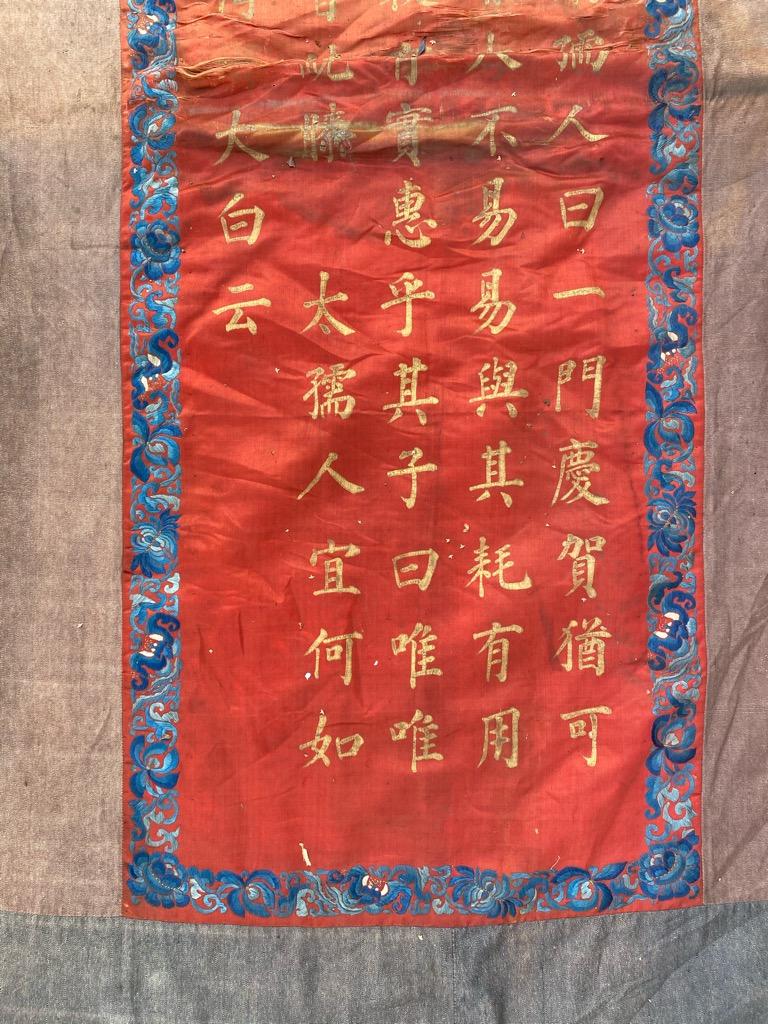 孺人曰一門慶賀猶可
人不易易與其耗有用
實惠乎其子曰唯唯
太孺人宜何如
大白云